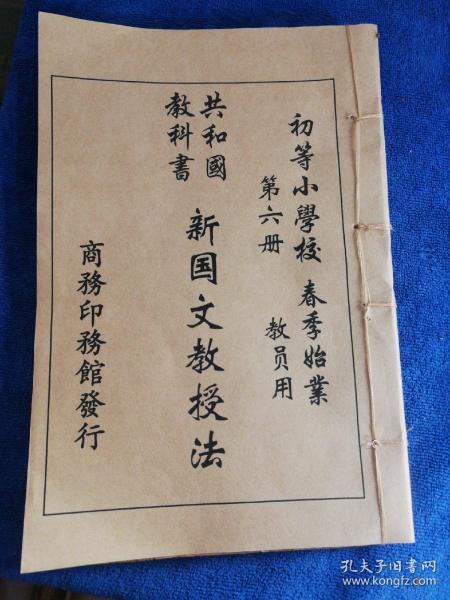 初等小學校 春季始業
第六册 教员用
共和國
教科書
新国文教授法
商務印務館發行
孔夫子旧书网
www.kongfz.com